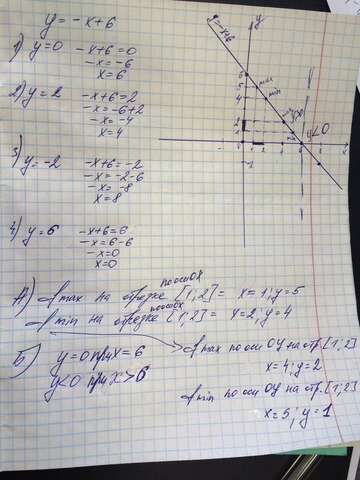 y = -x+6
1) y=0 -x+6=0
-x=-6
x=6
2) y=2 -x+6=2
-x=-6+2
-x=-4
x=4
3) y=-2 -x+6=-2
-x=-2-6
-x=-8
x=8
4) y=6 -x+6=6
-x=6-6
-x=0
x=0
y=-x+6
y
6
5
4
max
min
2
1
y<0
x
-1
1 2
А) max на отрезке по оси ОХ [1;2] = x=1; y=5
min на отрезке по оси ОХ [1;2] = x=2; y=4
Б) y=0 при x=6
y<0 при x>6
max по оси ОУ на отр. [1;2]
x=4; y=2
min по оси ОУ на отр. [1;2]
x=5; y=1